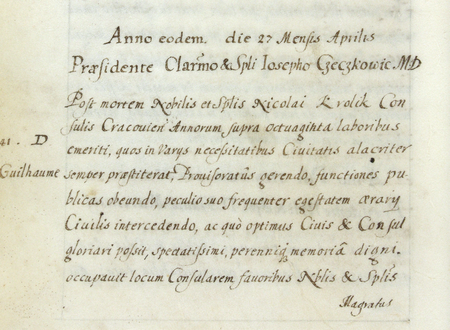 Anno eodem. die 27 Mensis Aprilis
Præsidente Clarmo & Spli Iosepho Czeczkowic MD
Post mortem Nobilis et Splis Nicolai Krolik Con
sulis Cracovien Annorum supra octuaginta laboribus
41. D
emeriti, quos in Varys necessitatibus Civitatis alacriter
Guilhaume
semper præstiterat, Provisoratus gerendo, functiones pu-
blicas obeundo, peculio suo frequenter egestatem ærary
Civilis intercedendo, ac quò optimus Civis & Consul
gloriari possit, spectatissimi, perenniq memoriâ digni.
occupavit locum Consularem favoribus Nblis & Splis
Magratus